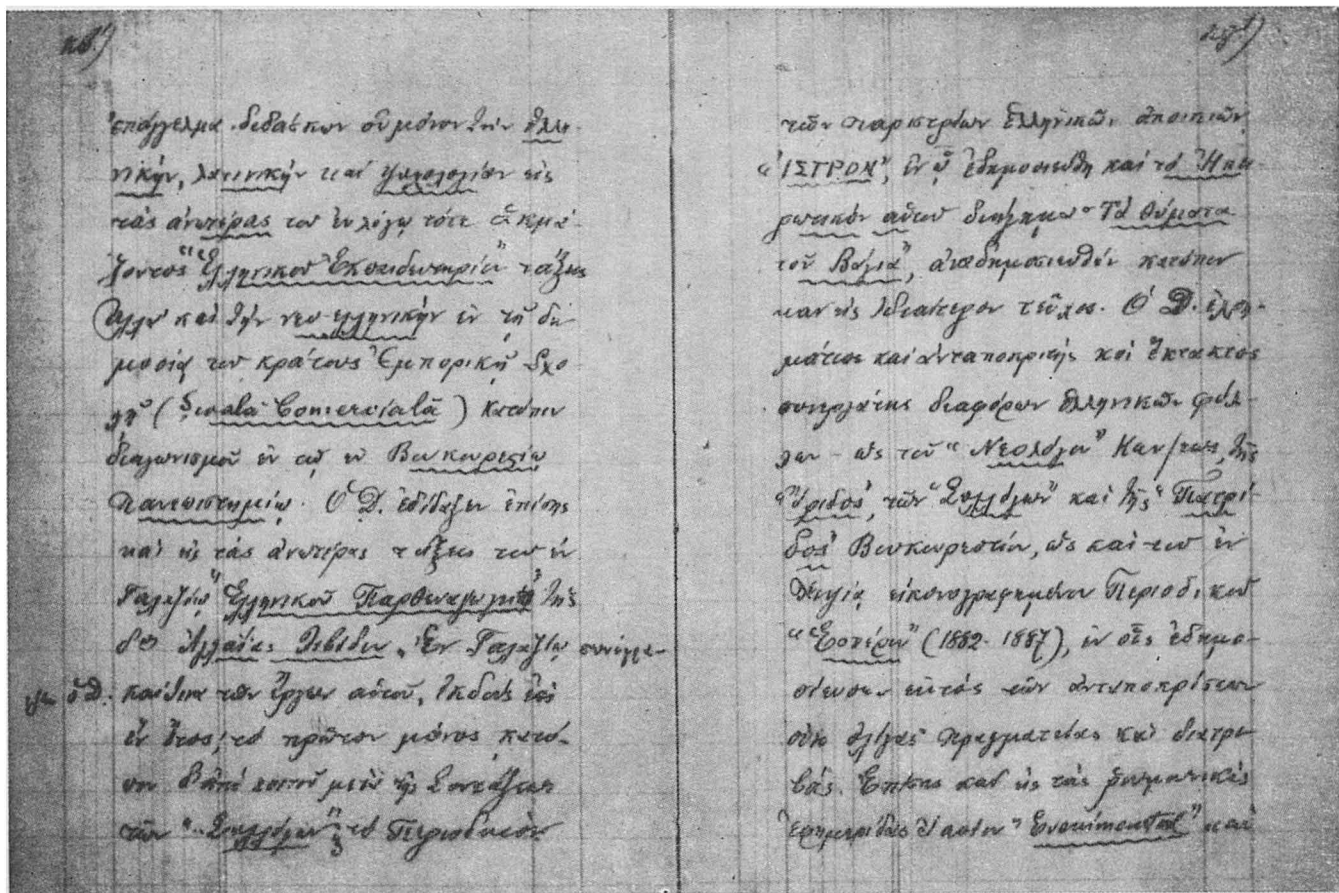 κβ')
ἐπάγγελμα διδάσκων οὐ μόνον τὴν ἑλλη-
νικήν, λατινικήν καὶ ψυχολογίαν εἰς
τὰς ἀνωτέρας του ἐν λόγῳ τότε ἀκμά-
ζοντος "Ἑλληνικοῦ Ἐκπαιδευτηρίου" τάξεις
ἀλλὰ καὶ τὴν νεοελληνικήν ἐν τῇ δη-
μοσίᾳ του κράτους Ἐμπορικῇ Σχο-
λῇ (Şcoală Comercială) κατόπιν
διαγωνισμοῦ ἐν τῷ ἐν Βουκουρεστίῳ
Πανεπιστημίῳ. Ὁ Δ. ἐδίδαξεν ἐπίσης
καὶ εἰς τὰς ἀνωτέρας τάξεις του ἐν
Γαλαζίῳ "Ἑλληνικοῦ Παρθεναγωγείου" τῆς
δος Ἀγλαΐας Λεβίδου. Ἐν Γαλαζίῳ συνέγρα-
ψεν ὁ Δ. καὶ τῶν ἔργων αὐτοῦ, ἐκδοὺς ἐπὶ
ἓν ἔτος, τὸ πρῶτον μόνος κατό-
πιν ἀπὸ κοινοῦ μετὰ τῆς Συντάξεως
τῶν "Συλλόγων" τὸ Περιοδικὸν
κγ')
τῶν παριστρίων Ἑλληνικῶν ἀποικιῶν
"ΙΣΤΡΟΝ", ἐν ᾧ ἐδημοσιεύθη καὶ τὸ Ἠπει-
ρωτικὸν αὐτοῦ διήγημα "Τὰ θύματα
τοῦ Βάγια", ἀναδημοσιευθὲν κατόπιν
καὶ εἰς ἰδιαίτερον τεῦχος. Ὁ Δ. ἐχρη-
μάτισε καὶ ἀνταποκριτής καὶ ἔκτακτος
συνεργάτης διαφόρων ἑλληνικῶν φύλ-
λων - ὡς τοῦ "Νεολόγου" Κων/πεως, τῆς
"Ἴριδος", τῶν "Συλλόγων" καὶ τῆς "Πατρί-
δος" Βουκουρεστίου, ὡς καὶ του ἐν
εἰκονογραφημένου Περιοδικοῦ
"Ἑσπέρου" (1882-1887), ἐν οἷς ἐδημο-
σίευσεν ἐκτὸς τῶν ἀνταποκρίσεων
οὐκ ὀλίγας πραγματείας καὶ διατρι-
βάς. Ἐπίσης καὶ εἰς τὰς ῥουμανικὰς
ἐφημερίδας "Evenimentul" καὶ